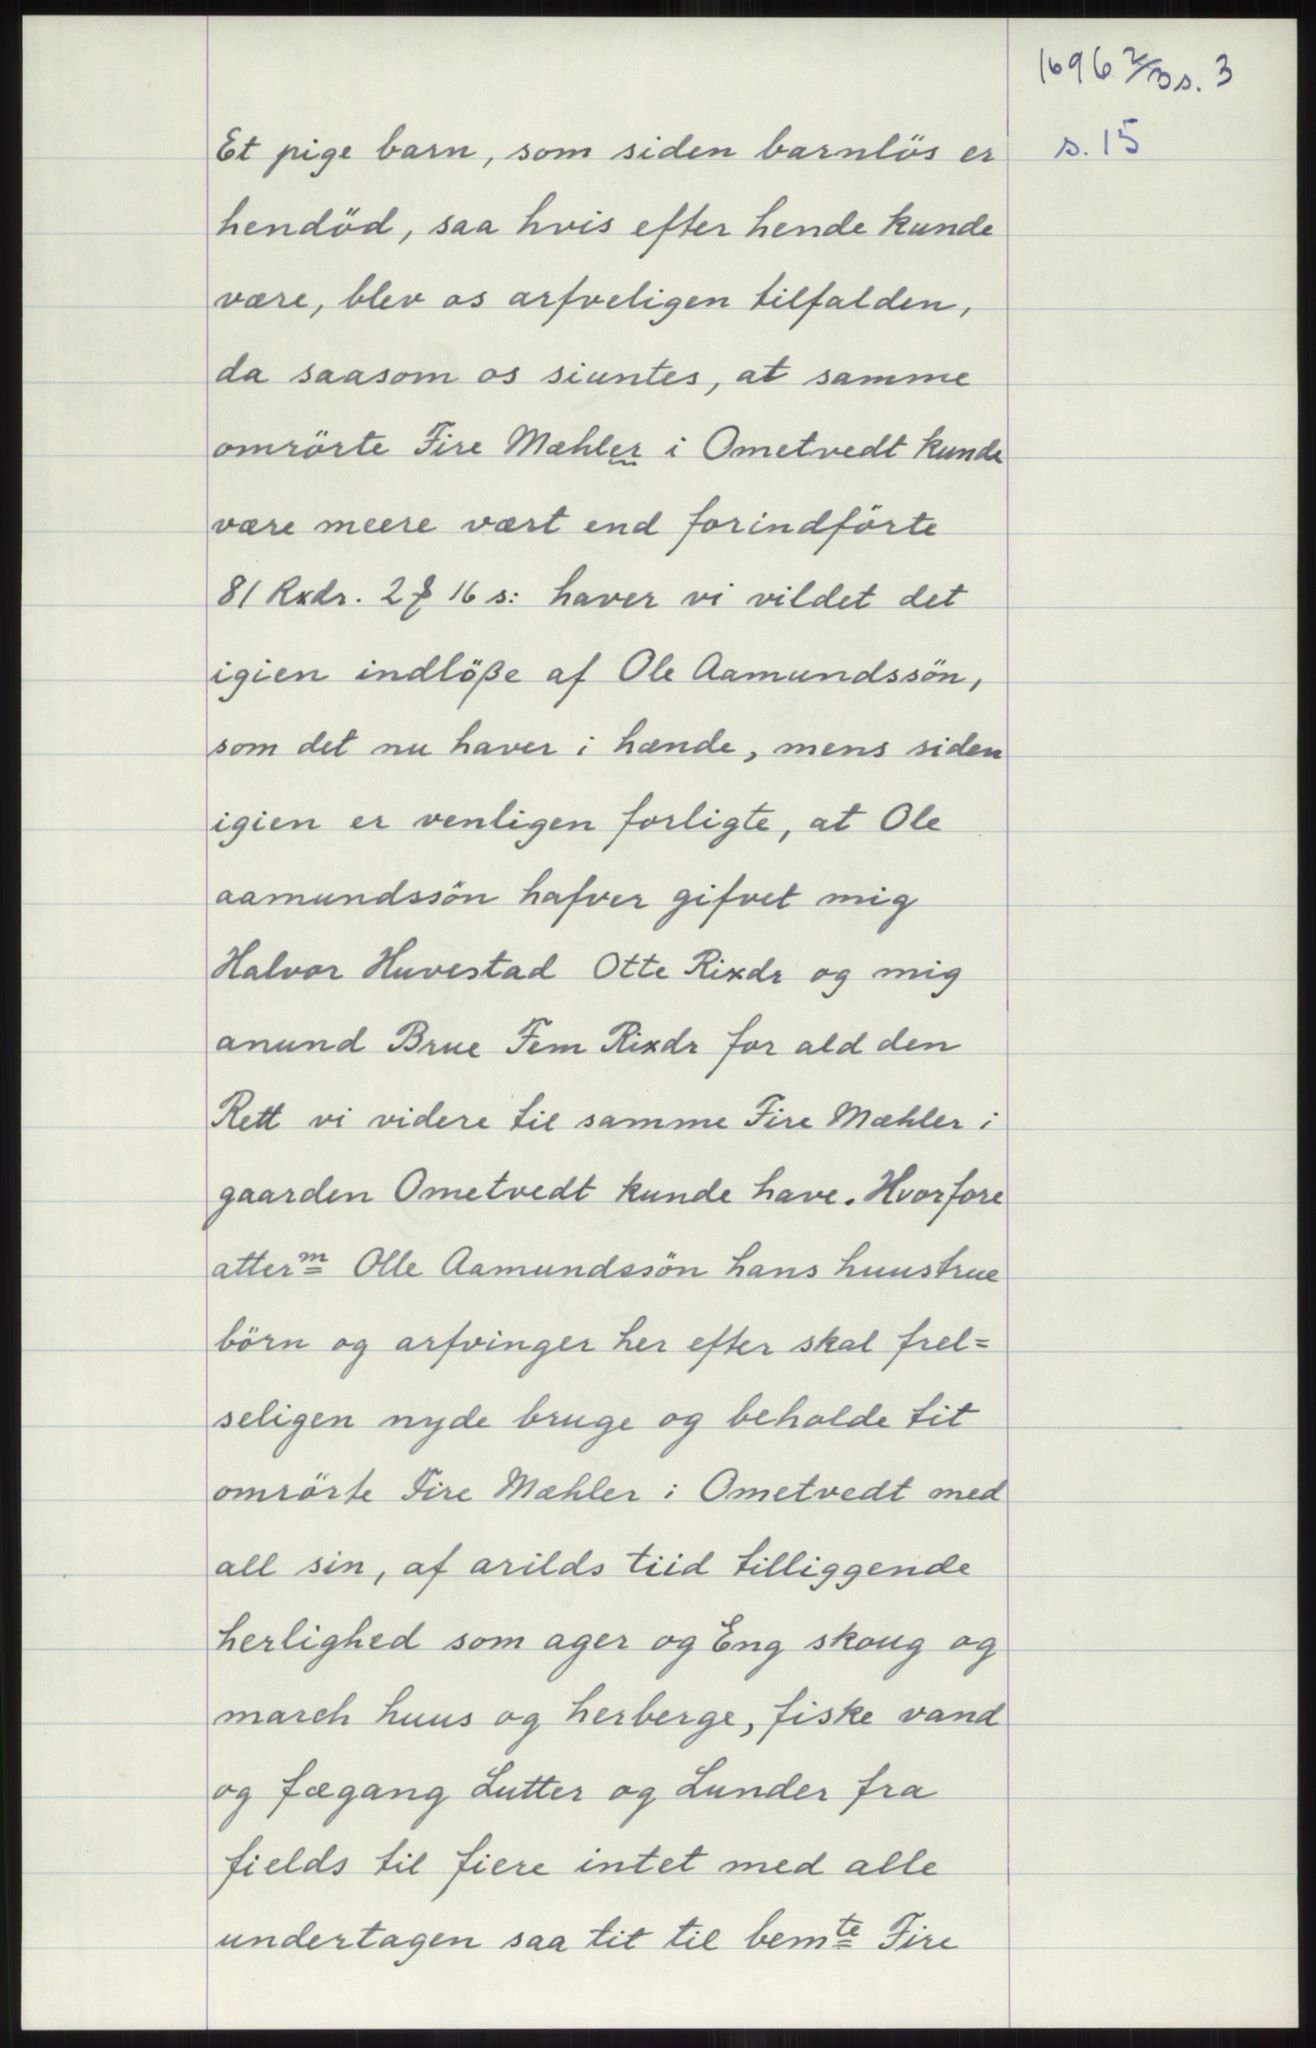 1696 2/3 s. 3
s. 15
Et pige barn, som siden barnlös er
hendöd, saa hvis efter hende kunde
være, blev os arfveligen tilfalden,
da saasom os siuntes, at samme
omrörte Fire Mæhler i Ometvedt kunde
være meere vært end forindförte
81 Rxdr. 2 ₰ 16 s: haver vi vildet det
igien indlöße af Ole Aamundssön,
som det nu haver i hænde, mens siden
igien er venligen forligte, at Ole
aamundssön hafver gifvet mig
Halvor Huvestad Otte Rixdr og mig
anund Brue Fem Rixdr for ald den
Rett vi videre til samme Fire Mæhler i
gaarden Ometvedt kunde have. Hvorfore
atterm Olle Aamundssön hans huustrue
börn og arfvinger her efter skal frel=
seligen nyde bruge og beholde tit
omrörte Fire Mæhler i Ometvedt med
all sin, af arilds tiid tilliggende
herlighed som ager og Eng skoug og
march huus og herberge, fiske vand
og fægang Lutter og Lunder fra
fields til fiere intet med alle
undertagen saa tit til bemte Fire